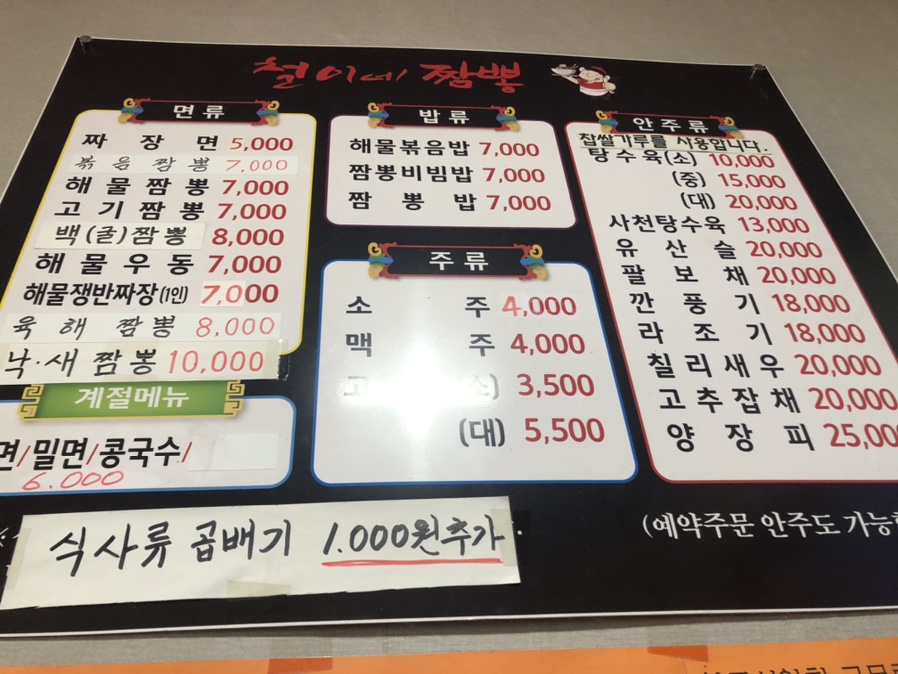 철이네 짬뽕
면류
짜장면 5,000
볶음짬뽕 7,000
해물짬뽕 7,000
고기짬뽕 7,000
백(굴)짬뽕 8,000
해물우동 7,000
해물쟁반짜장(1인) 7,000
육해짬뽕 8,000
낙·새짬뽕 10,000
계절메뉴
면/밀면/콩국수/
6.000
밥류
해물볶음밥 7,000
짬뽕비빔밥 7,000
짬뽕밥 7,000
주류
소주 4,000
맥주 4,000
3,500
(대) 5,500
안주류
찹쌀가루를 사용합니다.
탕수육(소) 10,000
(중) 15,000
(대) 20,000
사천탕수육 13,000
유산슬 20,000
팔보채 20,000
깐풍기 18,000
라조기 18,000
칠리새우 20,000
고추잡채 20,000
양장피 25,00
식사류 곱배기 1.000원추가
(예약주문 안주도 가능